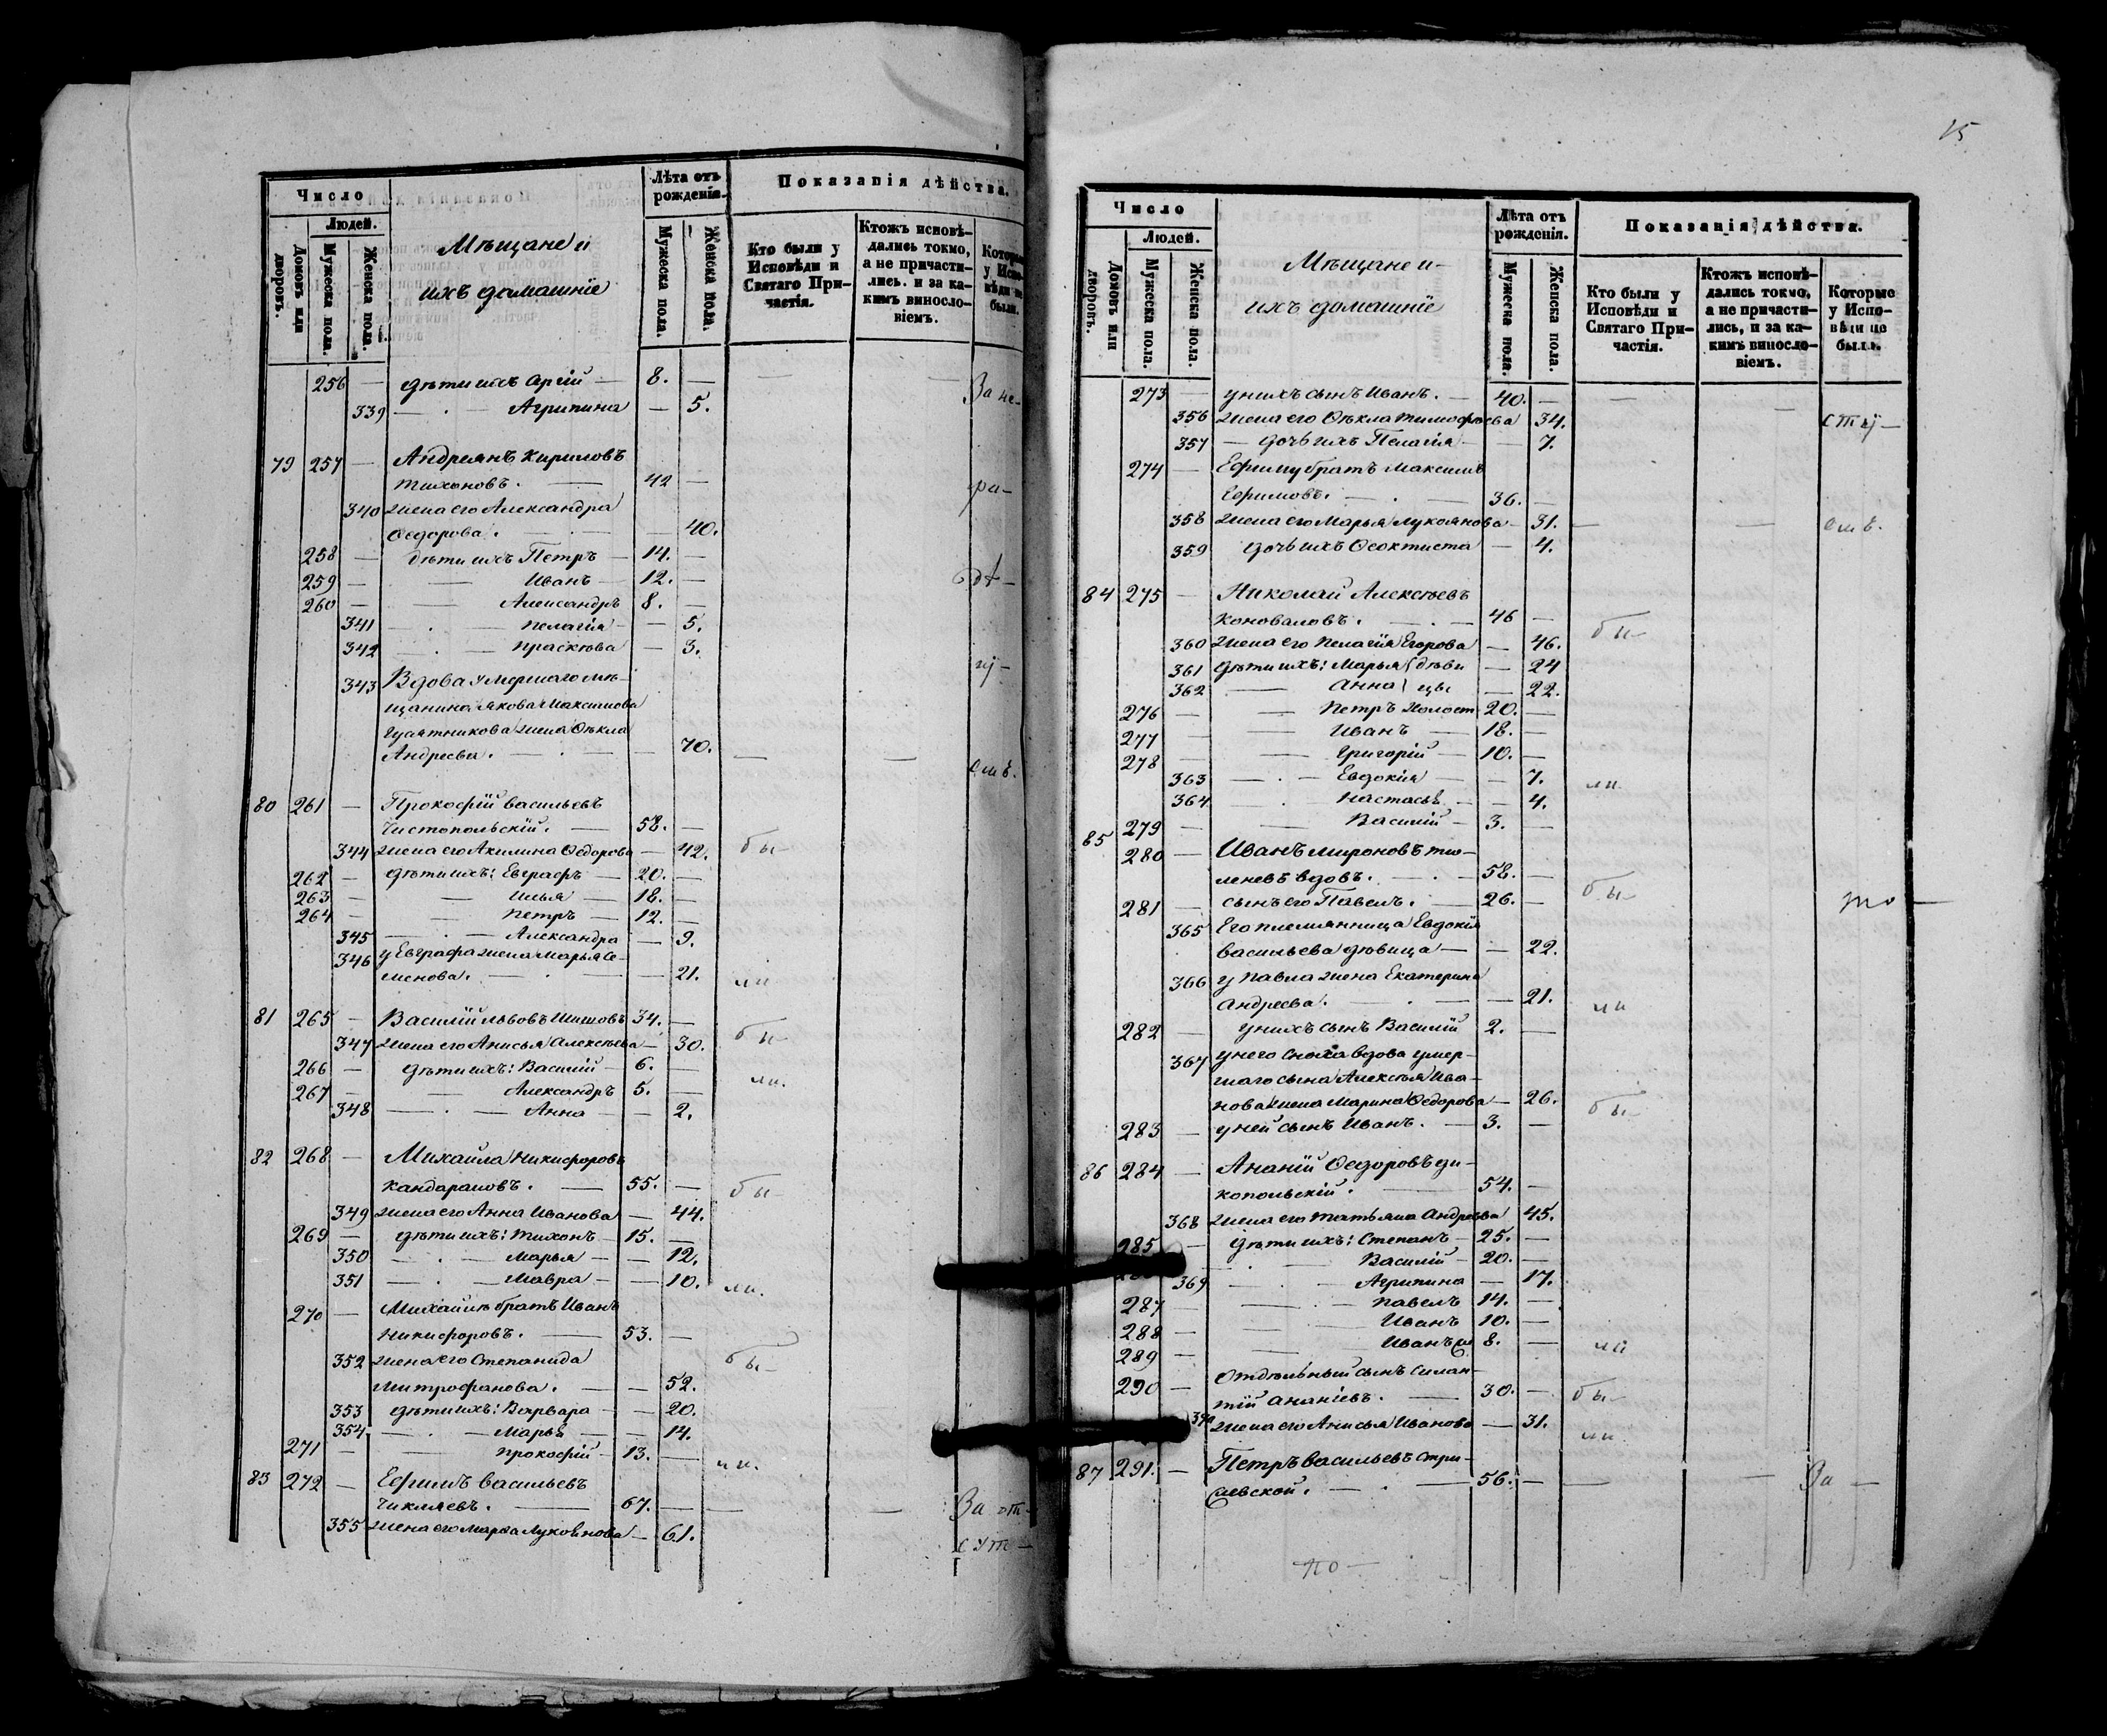 Число
Людей.
Домовъ или дворовъ.
Мужеска пола.
Женска пола.
Мѣщане и
ихъ домашніе
Лѣта отъ рожденія.
Мужеска пола.
Женска пола.
Показанія дѣйства.
Кто были у Исповѣди и Святаго При-частія.
Ктожъ исповѣ-дались токмо, а не причасти-лись. и за ка-кимъ виносло-віемъ.
Которые у Испо-вѣди не были.
256 — дѣти ихъ Сргій — 8. — За не-
339 — Агрипина — 5.
79 257 — Андреянъ Кириловъ
Тихоновъ. — 42 — ра-
340 жена его Александра
Ѳедорова. — 40.
258 — дѣти ихъ Петръ — 14. —
259 — Иванъ — 12. — дѣ-
260 — Александръ 8. —
341 — Пелагія — 5.
342 — Праскѣва — 3.
343 Вдова умершаго мѣ-
щанина Якова Максимова
жена Ѳекла
Андреева. — 70.
емъ.
80 261 — Прокофій Васильевъ
Чистопольскій. — 58. —
344 жена его Акилина Ѳедорова — 42. бы-
262 — дѣти ихъ: Евграфъ — 20. —
263 — Илья — 18. —
264 — Петръ — 12. —
345 — Александра — 9.
346 у Евграфа жена Марья Се-
менова. — 21. ли
81 265 — Василій Львовъ Шишовъ 34. —
347 жена его Анисья Алексѣева — 30. бы-
266 — дѣти ихъ: Василій — 6. —
267 — Александръ 5. — ли.
348 — Анна — 2.
82 268 — Михаила Никифоровъ
Кандараловъ. — 55. — бы-
349 жена его Анна Иванова — 44.
269 — дѣти ихъ: Тихонъ — 15. —
350 — Марья — 12.
351 — Мавра — 10. ли.
270 — Михайлѣ братъ Иванъ
Никифоровъ. — 53. —
352 жена его Степанида бы-
Митрофанова. — 52.
353 дѣти ихъ: Варвара — 20.
354 — Марья — 14.
271 — Прокофій — 13. — ли.
83 272 — Ефимъ Васильевъ
Чикляевъ. — 67. — За от-
355 жена его Марѳа Лукоянова — 61. сут-
15
Число
Людей.
Домовъ или дворовъ.
Мужеска пола.
Женска пола.
Мѣщане и-
ихъ домашніе
Лѣта отъ рожденія.
Мужеска пола.
Женска пола.
Показанія дѣйства.
Кто были у Исповѣди и Святаго При-частія.
Ктожъ исповѣ-дались токмо, а не причасти-лись, и за ка-кимъ виносло-віемъ.
Которые у Испо-вѣди не были.
273 — у нихъ сынъ Иванъ. — 40. —
356 жена его Ѳекла Тимофѣева 34. ству-
357 — дочь ихъ Пелагія — 7.
274 — Ефиму братъ Максимъ
Ефимовъ. — 36. —
358 жена его Марья Лукоянова — 31. — емъ.
359 дочь ихъ Ѳеоктиста — 4.
84 275 — Николай Алексѣевъ
Коноваловъ. — 46 — бы-
360 жена его Пелагія Егорова — 46.
361 дѣти ихъ: Марья } дѣви — 24
362 — Анна } цы — 22.
276 — Петръ холост 20. —
277 — Иванъ — 18. —
278 — Григорій — 10. —
363 — Евдокія — 7. ли
364 — Настасья — 4.
279 — Василій — 3. —
85 280 — Иванъ Мироновъ Тю-
леневъ вдовъ. — 58. — бы-
281 — сынъ его Павелъ. — 26. — то —
365 Его племянница Евдокія
Васильева дѣвица — 22.
366 у Павла жена Екатерина
Андреева. — 21. ли
282 — у нихъ сынъ Василій 2. —
367 у него сноха вдова умер-
шаго сына Алексѣя Ива-
нова жена Марина Ѳедорова — 26. бы-
283 — у ней сынъ Иванъ. — 3. —
86 284 — Ананій Ѳедоровъ Ди-
копольскій. — 54. —
368 жена его Татьяна Андреева 45.
285 — дѣти ихъ: Степанъ — 25. —
Василій — 20. —
369 — Агрипина — 17.
287 — Павелъ 14. —
288 — Иванъ 10. —
289 — Иванъ 8. — ли
290 — отдѣльный сынъ Силан-
тій Ананіевъ. — 30. — бы-
жена его Анисья Иванова — 31. ли
87 291. — Петръ Васильевъ
56. — За —
по —